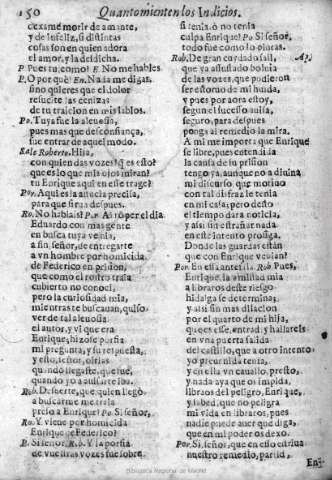 150 Quanto mienten los Indicios.
dexame morir de amante,
y de infeliz, si distintas
cosas son en quien adora
el amor, y la desdicha.
P. Pues tu, como? E. No me hables.
P. O por què? En. Nada me digas,
sino quieres que el dolor
resucite las cenizas
de tu traicion en mis labios.
Por. Tuya fue la alevosia,
pues mas que desconfiança,
fue entrar de aquel modo.
Sale Roberto. Hija,
con quien das vozes? q̃ es esto?
que es lo que mis ojos miran?
tu Enrique aqui en este trage?
Por. Aqui es la atencia precisa,
para que finja despues.
Ro. No hablais? Por. Assoper el dia
Eduardo con mas gente
en busca tuya venia,
a fin, señor, de entregarte
a vn hombre por homicida
de Federico en prision,
que como el rostro traìa
cubierto no conoci,
pero la curiosidad mia,
mientras te buscavan, quiso
ver de tal alevosia
el autor, y vi que era
Enrique, hizose porfia
mi pregunta, y su respuesta,
y esto, señor, oirias
quando llegaste, que fue,
quando yo a avisarte iba.
Rob. De suerte, que quien llegò
a buscarme me traìa
preso a Enrique? Po. Si señor,
Ro. Y viene por homicida
Enrique de Federico?
P. Si señor. Ro. Y la porfia
de vuestras vozes fue sobre
si tenia, ò no tenia
culpa Enrique? Po. Si señor,
todo fue como lo pintas.
Rob. De gran cuydado salì, Ap.
que ya assustado bolvia
de las vozes, que pudieron
ser estorvo de mi huida,
y pues por aora estoy,
segun el sucesso avisa,
seguro, para despues
ponga al remedio la mira.
A mi me importa que Enrique
se libre, pues entendida
la causa de su prision
tengo ya, aunque no adivina
mi discurso que motivo
con tal disfraz le tenia
en mi casa; pero desto
el tiempo darà noticia,
y assi sin estrañar nada
en este intento prosiga.
Donde las guardas estàn
que con Enrique venian?
Por. En essa antesala. Rob. Pues,
Enrique, la amistad mia
a libraros deste riesgo
hidalga se determina;
y assi sin mas dilacion
por el quarto de mi hija,
que es esse, entrad, y hallareis
en vna puerta salida
del castillo, que a otro intento
yo prevenida tenia,
y en ella vn cavallo, presto,
y nada aya que os impida,
libraos del peligro, Enrique,
y sabed, que no peligra
mi vida en libraros, pues
nadie puede aver que diga,
que en mi poder os dexo.
Por. Si, señor, que en esso estriva
nuestro remedio, partid,
En-
Biblioteca Regional de Madrid